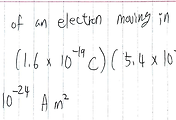 of an electron moving in
(1.6 x 10⁻¹⁹ C) (5.4 x 10
10⁻²⁴ A m²